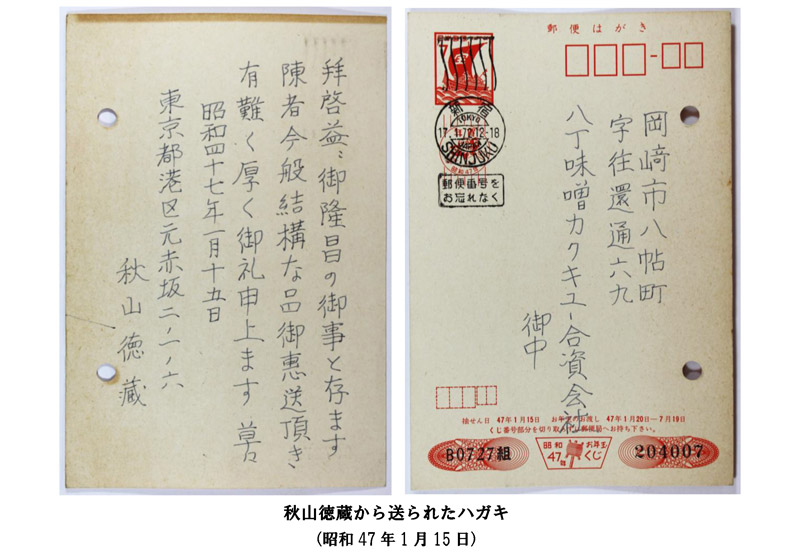 拝啓益〻御隆昌の御事と存ます
陳者今般結構な品御恵送頂き
有難く厚く御礼申上ます 草々
昭和四十七年一月十五日
東京都港区元赤坂二ノ一ノ六
秋山徳蔵
郵便はがき
新宿
TOKYO
17.1.72.12-18
SHINJUKU
郵便番号を
お忘れなく
岡﨑市八帖町
字往還通六九
八丁味噌カクキユー合資会社
御中
抽せん日 47年1月15日 お年玉のお渡し 47年1月20日—7月19日
くじ番号部分を切り取らないで郵便局へお持ち下さい。
B0727組
昭和
47年
お年玉
くじ
204007
秋山徳蔵から送られたハガキ
(昭和47年1月15日)